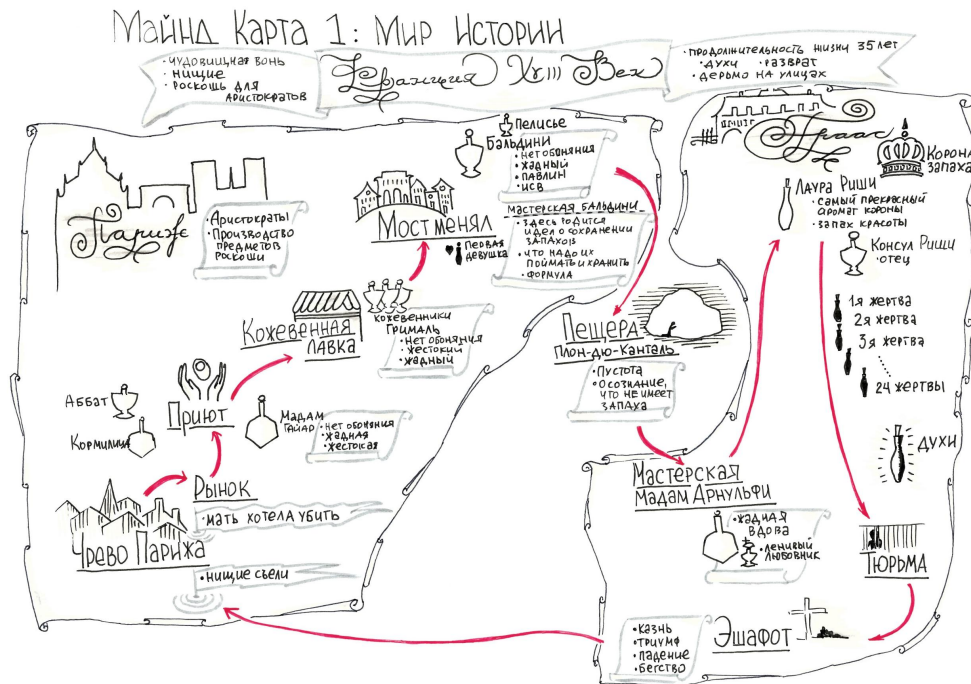 Майнд Карта 1: Мир Истории
• чудовищная вонь
• нищие
• роскошь для
аристократов
Франция XVIII Век
• продолжительность жизни 35 лет
• духи • разврат
• дерьмо на улицах
Париж
• Аристократы
• Производство
предметов
роскоши
Мост менял
Первая
девушка
Пелисье
Бальдини
• нет обоняния
• жадный
• павлин
• исв
Мастерская Бальдини
• здесь родится
идея о сохранении
запахов
• что надо их
поймать и хранить
• формула
Кожевенная
лавка
кожевенники
Грималь
• нет обоняния
• жестокий
• жадный
Приют
Аббат
Кормилица
Мадам
Гайар
• нет обоняния
• жадная
• жестокая
Рынок
• мать хотела убить
Чрево Парижа
• нищие съели
Пещера
Плон-дю-Канталь
• Пустота
• Осознание,
что не имеет
запаха
Мастерская
мадам Арнульфи
• жадная
вдова
• ленивый
любовник
Граас
Корона
запаха
Лаура Риши
• самый прекрасный
аромат короны
• запах красоты
Консул Риши
• отец
1я жертва
2я жертва
3я жертва
24 жертвы
духи
Тюрьма
Эшафот
• казнь
• триумф
• падение
• бегство